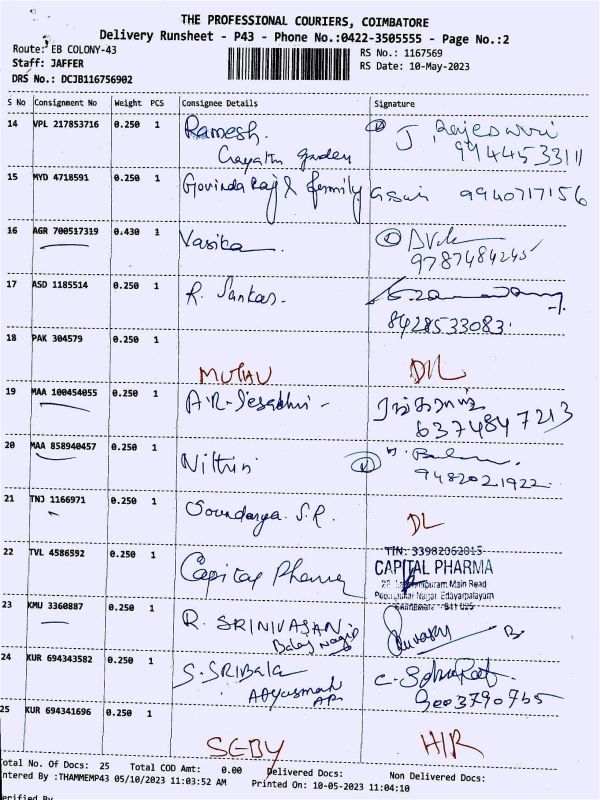 THE PROFESSIONAL COURIERS, COIMBATORE
Delivery Runsheet - P43 - Phone No.:0422-3505555 - Page No.:2
Route: EB COLONY-43
RS No.: 1167569
Staff: JAFFER
RS Date: 10-May-2023
DRS No.: DCJB116756902
S No Consignment No Weight PCS Consignee Details Signature
14 VPL 217853716 0.250 1 Ramesh. J. Rajeswari
Gayathri garden 9944533111
15 MYD 4718591 0.250 1 Govinda Raj & family 9940717156
16 AGR 700517319 0.430 1 Vasika
9787484245
17 ASD 1185514 0.250 1 R. Sankar
8428533083
18 PAK 304579 0.250 1
MUTHU D/L
19 MAA 100454055 0.250 1 A.R.
6374847213
20 MAA 858940457 0.250 1 Nithin
9482021922
21 TNJ 1166971 0.250 1 Soundarya. S.R. DL
22 TVL 4586592 0.250 1 Capital Pharma TIN: 33982062015
CAPITAL PHARMA
Main Road
Nagar Edayarpalayam
23 KMU 3360887 1 R. SRINIVASAN
Balaji Nagar
24 KUR 694343582 0.250 1 S. SRIBALA
9003790765
25 KUR 694341696 0.250 1
SEBY H/R
Total No. Of Docs: 25 Total COD Amt: 0.00 Delivered Docs: Non Delivered Docs:
ntered By :THAMMEMP43 05/10/2023 11:03:52 AM Printed On: 10-05-2023 11:04:10
erified By